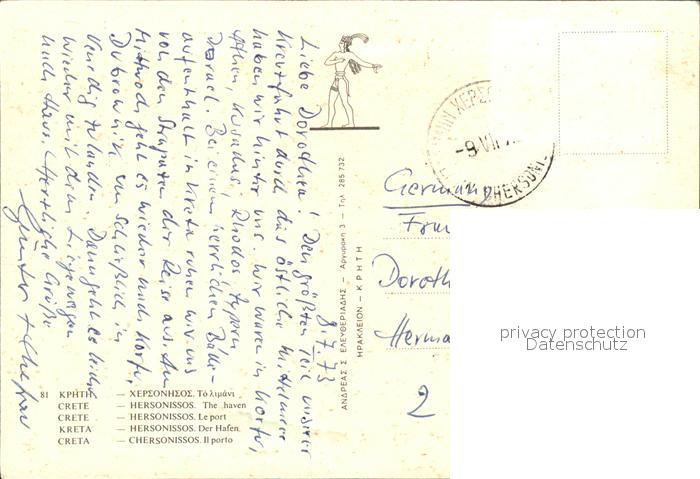 8.7.73
Liebe Dorothea! Den größten Teil unserer
Kreuzfahrt durch das östliche Mittelmeer
haben wir hinter uns. Wir waren in Korfu,
Athen, Kusadasi, Rhodos, Zypern,
Israel. Bei einem herrlichen Bade-
aufenthalt in Kreta ruhen wir uns
von den Strapazen der Reise aus. Am
Mittwoch geht es wieder nach Korfu,
Dubrovnik, um schließlich in
Venedig zu landen. Dann geht es
wieder mit dem Liegewagen
nach Haus. Herzliche Grüße
Günter +
81 ΚΡΗΤΗ — ΧΕΡΣΟΝΗΣΟΣ. Τὸ λιμάνι
CRETE — HERSONISSOS. The haven
CRETE — HERSONISSOS. Le port
KRETA — HERSONISSOS. Der Hafen.
CRETA — CHERSONISSOS. Il porto
ΑΝΔΡΕΑΣ Σ. ΕΛΕΥΘΕΡΙΑΔΗΣ — Αργυράκη 3 — Τηλ. 285.732
ΗΡΑΚΛΕΙΟΝ — ΚΡΗΤΗ
ΧΕΡΣ
-9 VII
HERSONI
Germany
Frau
Doroth
Herma
2
privacy protection
Datenschutz